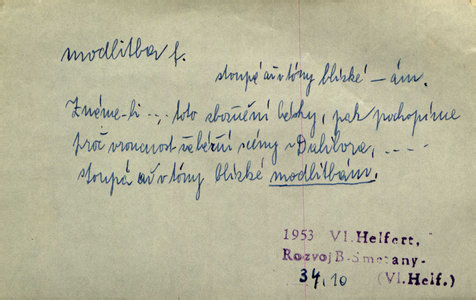 modlitba f.
stoupá až v tóny blízké – ám.
Známe-li ... toto sboření lásky, pak pochopíme
proč vroucnost válečné scény v Daliboru, ....
stoupá až v tóny blízké modlitbám.
1953 Vl.Helfert,
Rozvoj B.Smetany-
34,10 (Vl.Helf.)